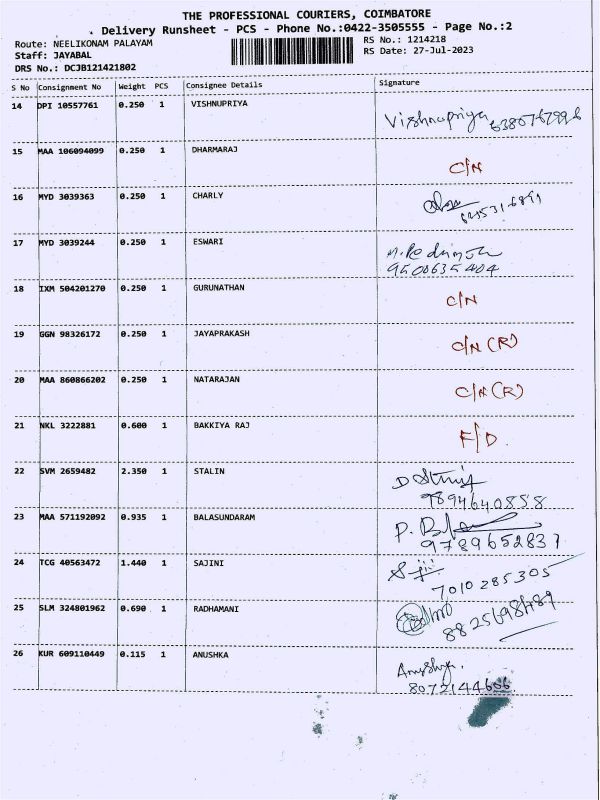 THE PROFESSIONAL COURIERS, COIMBATORE
Delivery Runsheet - PCS - Phone No.:0422-3505555 - Page No.:2
Route: NEELIKONAM PALAYAM RS No.: 1214218
Staff: JAYABAL RS Date: 27-Jul-2023
DRS No.: DCJB121421802
S No Consignment No Weight PCS Consignee Details Signature
14 DPI 10557761 0.250 1 VISHNUPRIYA
Vishnupriya
15 MAA 106094099 0.250 1 DHARMARAJ
C/N
16 MYD 3039363 0.250 1 CHARLY
17 MYD 3039244 0.250 1 ESWARI
9500635404
18 IXM 504201270 0.250 1 GURUNATHAN
C/N
19 GGN 98326172 0.250 1 JAYAPRAKASH
C/N (R)
20 MAA 860866202 0.250 1 NATARAJAN
C/N (R)
21 NKL 3222881 0.600 1 BAKKIYA RAJ
F/D.
22 SVM 2659482 2.350 1 STALIN
9894640858
23 MAA 571192092 0.935 1 BALASUNDARAM
9789652837
24 TCG 40563472 1.440 1 SAJINI
7010285305
25 SLM 324801962 0.690 1 RADHAMANI
26 KUR 609110449 0.115 1 ANUSHKA
8072144606